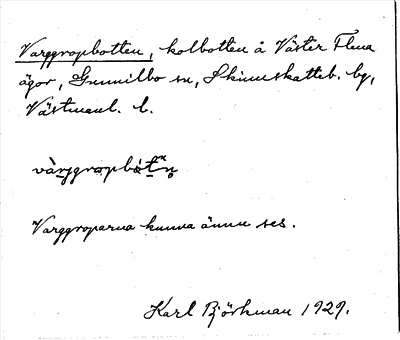 Varggropbotten, kolbotten å Väster Flena
ägor, Gunnilbo sn, Skinnskatteb. bg,
Västmanl. l.
Varggroparna kunna ännu ses.
Karl Björkman 1929.